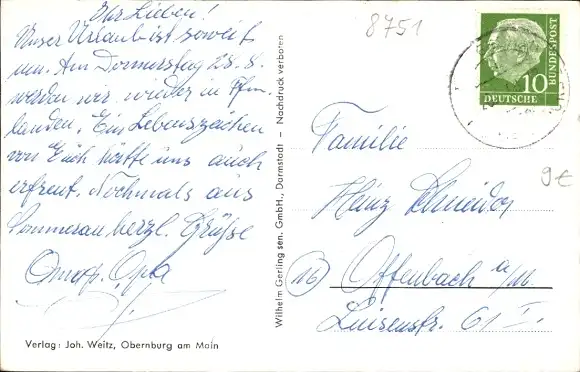 Ihr Lieben!
Unser Urlaub ist soweit
um. Am Donnerstag 28. 8.
werden wir wieder in Ffm.
landen. Ein Lebenszeichen
von Euch hätte uns auch
erfreut. Nochmals aus
Sommerau herzl. Grüsse
Oma + Opa
Verlag: Joh. Weitz, Obernburg am Main
Wilhelm Gerling sen. GmbH., Darmstadt – Nachdruck verboten
8751
DEUTSCHE
BUNDESPOST
10
Familie
Heinz Schneider
(16) Offenbach a/M.
Luisenstr. 61 I.
9€